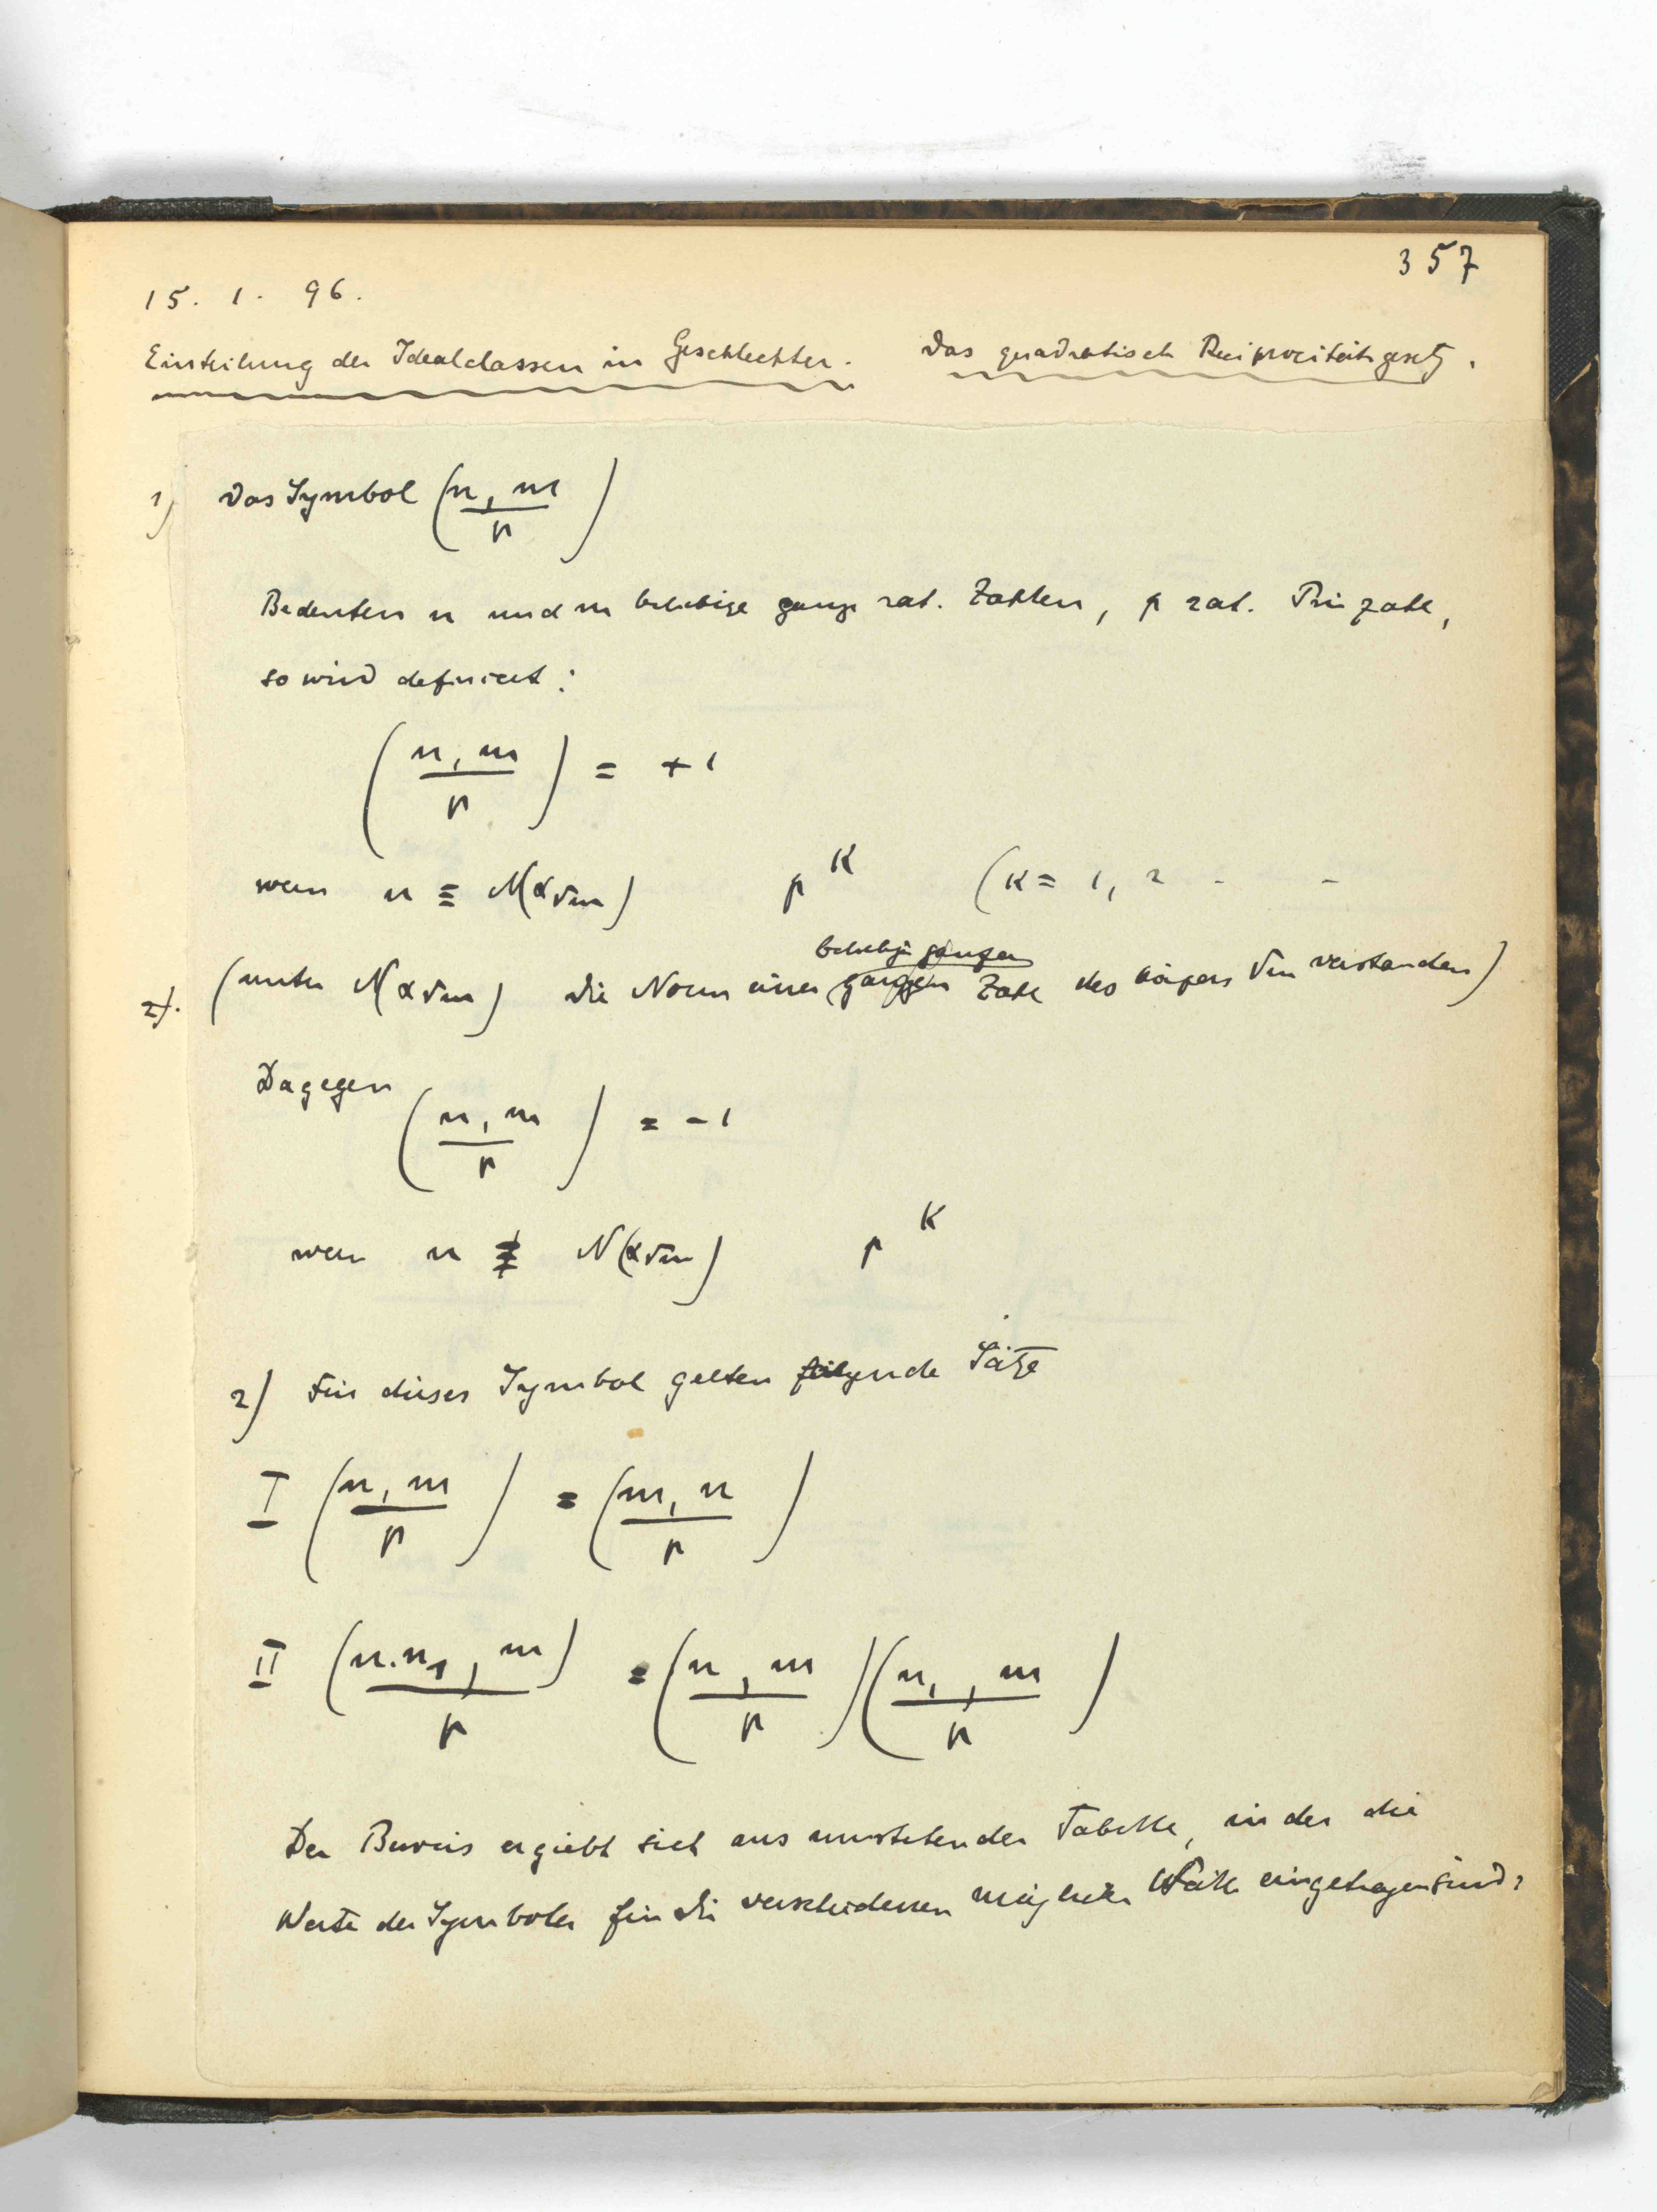 357
15. 1. 96.
Einteilung der Idealclassen in Geschlechter. Das quadratische Reciprocitätsgesetz.
1) Das Symbol (n, m / p)
Bedeuten n und m beliebige ganze rat. Zahlen, p rat. Primzahl,
so wird definiert:
(n, m / p) = +1
wenn n ≡ N(α√m) p^K (K = 1, 2 - -
beliebige ganzen
2). (unter N(α√m) die Norm einer ganzen Zahl des Körpers √m verstanden)
Dagegen
(n, m / p) = -1
wenn n ≢ N(α√m) p^K
2) Für dieses Symbol gelten folgende Sätze
I (n, m / p) = (m, n / p)
II (n.n₁, m / p) = (n, m / p)(n₁, m / p)
Der Beweis ergiebt sich aus umstehender Tabelle, in der die
Werte des Symboles für die verschiedenen möglichen Fälle eingetragen sind: